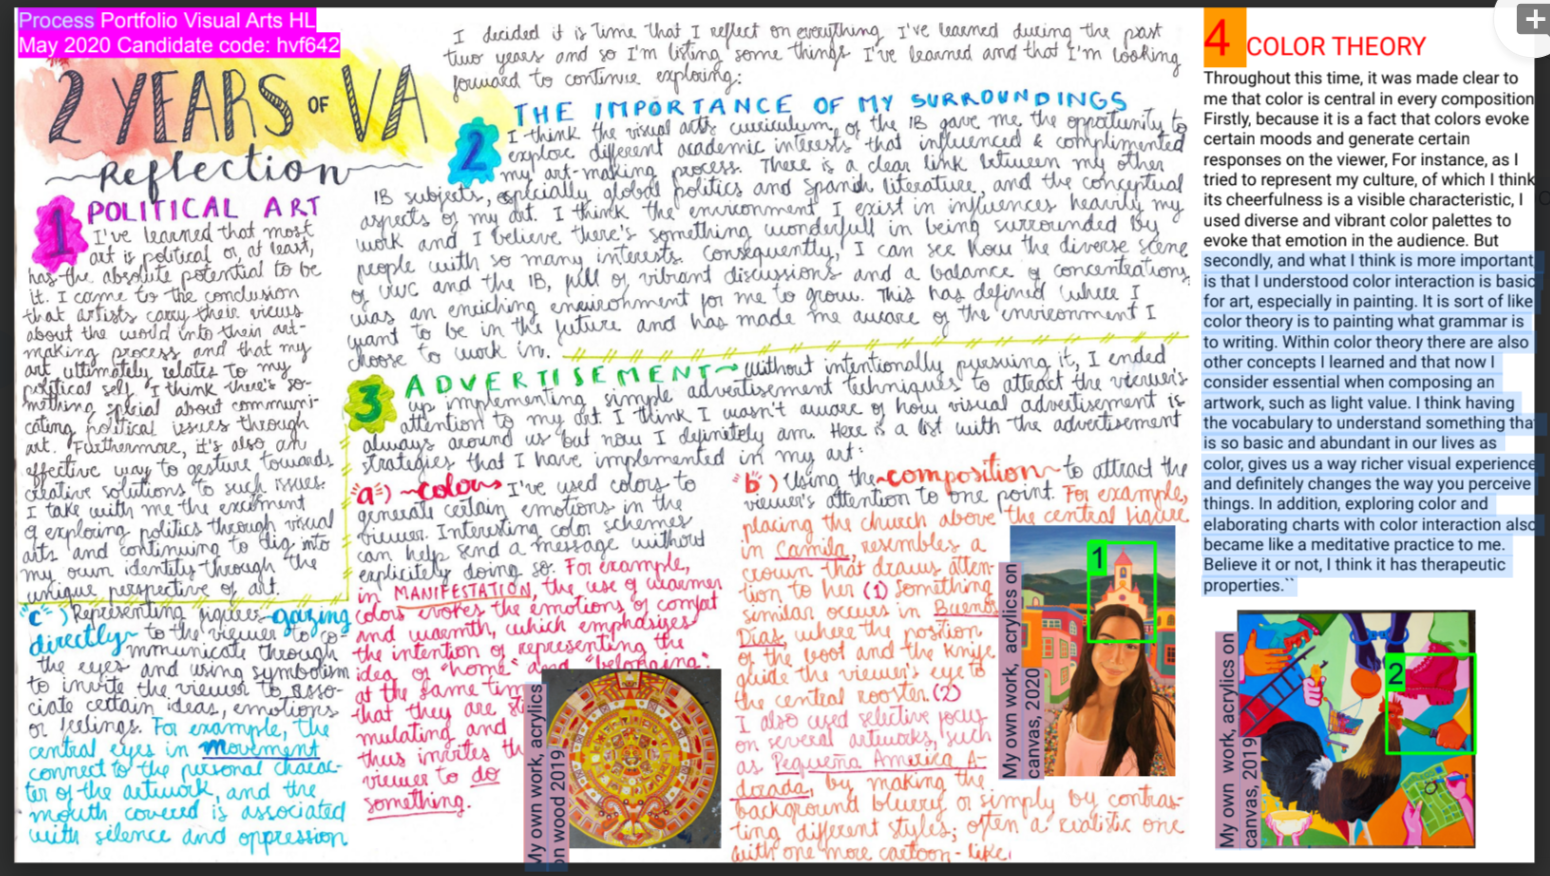 Process Portfolio Visual Arts HL
May 2020 Candidate code: hvf642
2 YEARS OF VA
Reflection
I decided it is time that I reflect on everything I've learned during the past
two years and so I'm listing some things I've learned and that I'm looking
forward to continue exploring:
1 POLITICAL ART
I've learned that most
art is political or, at least,
has the absolute potential to be
it. I came to the conclusion
that artists carry their views
about the world into their art-
making process and that my
art ultimately relates to my
political self. I think there's so-
mething special about communi-
cating political issues through
art. Furthermore, it's also an
effective way to gesture towards
creative solutions to such issues.
I take with me the excitement
of exploring politics through visual
arts and continuing to dig into
my own identity through the
unique perspective of art.
2 THE IMPORTANCE OF MY SURROUNDINGS
I think the visual arts curriculum of the IB gave me the opportunity to
explore different academic interests that influenced & complimented
my art-making process. There is a clear link between my other
IB subjects, especially global politics and Spanish literature, and the conceptual
aspects of my art. I think the environment I exist in influences heavily my
work and I believe there's something wonderfull in being surrounded by
people with so many interests. Consequently, I can see how the diverse scene
of UWC and the IB, full of vibrant discussions and a balance of concentrations,
was an enriching environment for me to grow. This has defined where I
want to be in the future and has made me aware of the environment I
choose to work in.
3 ADVERTISEMENT~ Without intentionally pursuing it, I ended
up implementing simple advertisement techniques to attract the viewer's
attention to my art. I think I wasn't aware of how visual advertisement is
always around us but now I definitely am. Here is a list with the advertisement
strategies that I have implemented in my art:
"a") ~colors I've used colors to
generate certain emotions in the
viewer. Interesting color schemes
can help send a message without
explicitely doing so. For example,
in MANIFESTATION, the use of warmer
colors evokes the emotions of comfort
and warmth, which emphasizes
the intention of representing the
idea of "home" and "belonging."
at the same tim
that they are sti
mulating and
thus invites th
viewer to do
something.
"b") Using the ~composition~ to attract the
viewer's attention to one point. For example,
placing the church above the central figure
in Camila, resembles a
crown that draws atten-
tion to her (1) Something
similar occurs in Buenos
Días where the position
of the boot and the knife
guide the viewer's eye to
the central rooster. (2)
I also used selective focus
on several artworks, such
as Pequeña America A-
dorada, by making the
background blurry or simply by contras-
ting different styles; often a realistic one
with one more cartoon-like.
"c") Representing figures ~gazing
directly~ to the viewer to co-
mmunicate through
the eyes and using symbolism
to invite the viewer to asso-
ciate certain ideas, emotions
or feelings. For example, the
central eyes in Movement
connect to the personal charac-
ter of the artwork, and the
mouth covered is associated
with silence and oppression
My own work, acrylics
on wood 2019
My own work, acrylics on
canvas, 2020
1
4 COLOR THEORY
Throughout this time, it was made clear to
me that color is central in every composition
Firstly, because it is a fact that colors evoke
certain moods and generate certain
responses on the viewer, For instance, as I
tried to represent my culture, of which I think
its cheerfulness is a visible characteristic, I
used diverse and vibrant color palettes to
evoke that emotion in the audience. But
secondly, and what I think is more important,
is that I understood color interaction is basic
for art, especially in painting. It is sort of like
color theory is to painting what grammar is
to writing. Within color theory there are also
other concepts I learned and that now I
consider essential when composing an
artwork, such as light value. I think having
the vocabulary to understand something that
is so basic and abundant in our lives as
color, gives us a way richer visual experience
and definitely changes the way you perceive
things. In addition, exploring color and
elaborating charts with color interaction also
became like a meditative practice to me.
Believe it or not, I think it has therapeutic
properties.``
My own work, acrylics on
canvas, 2019
2